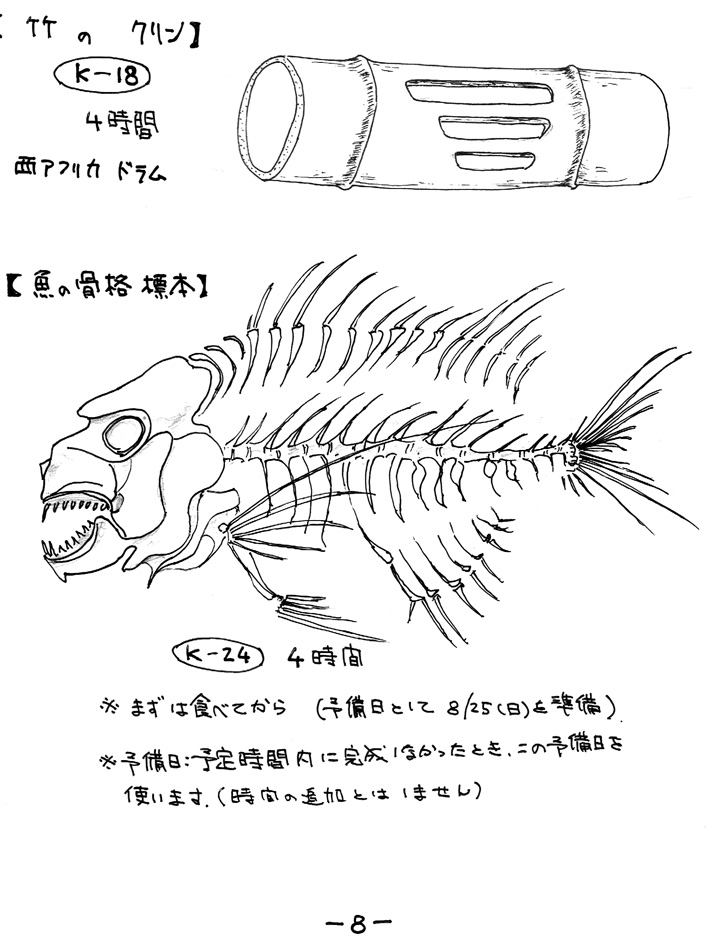 【 竹の クリン】
K-18
4時間
西アフリカ ドラム
【魚の骨格 標本】
K-24 4時間
※ まずは食べてから (予備日として 8/25(日)を準備)
※予備日:予定時間内に完成しなかったとき、この予備日を
使います。(時間の追加とはしません)
-8-